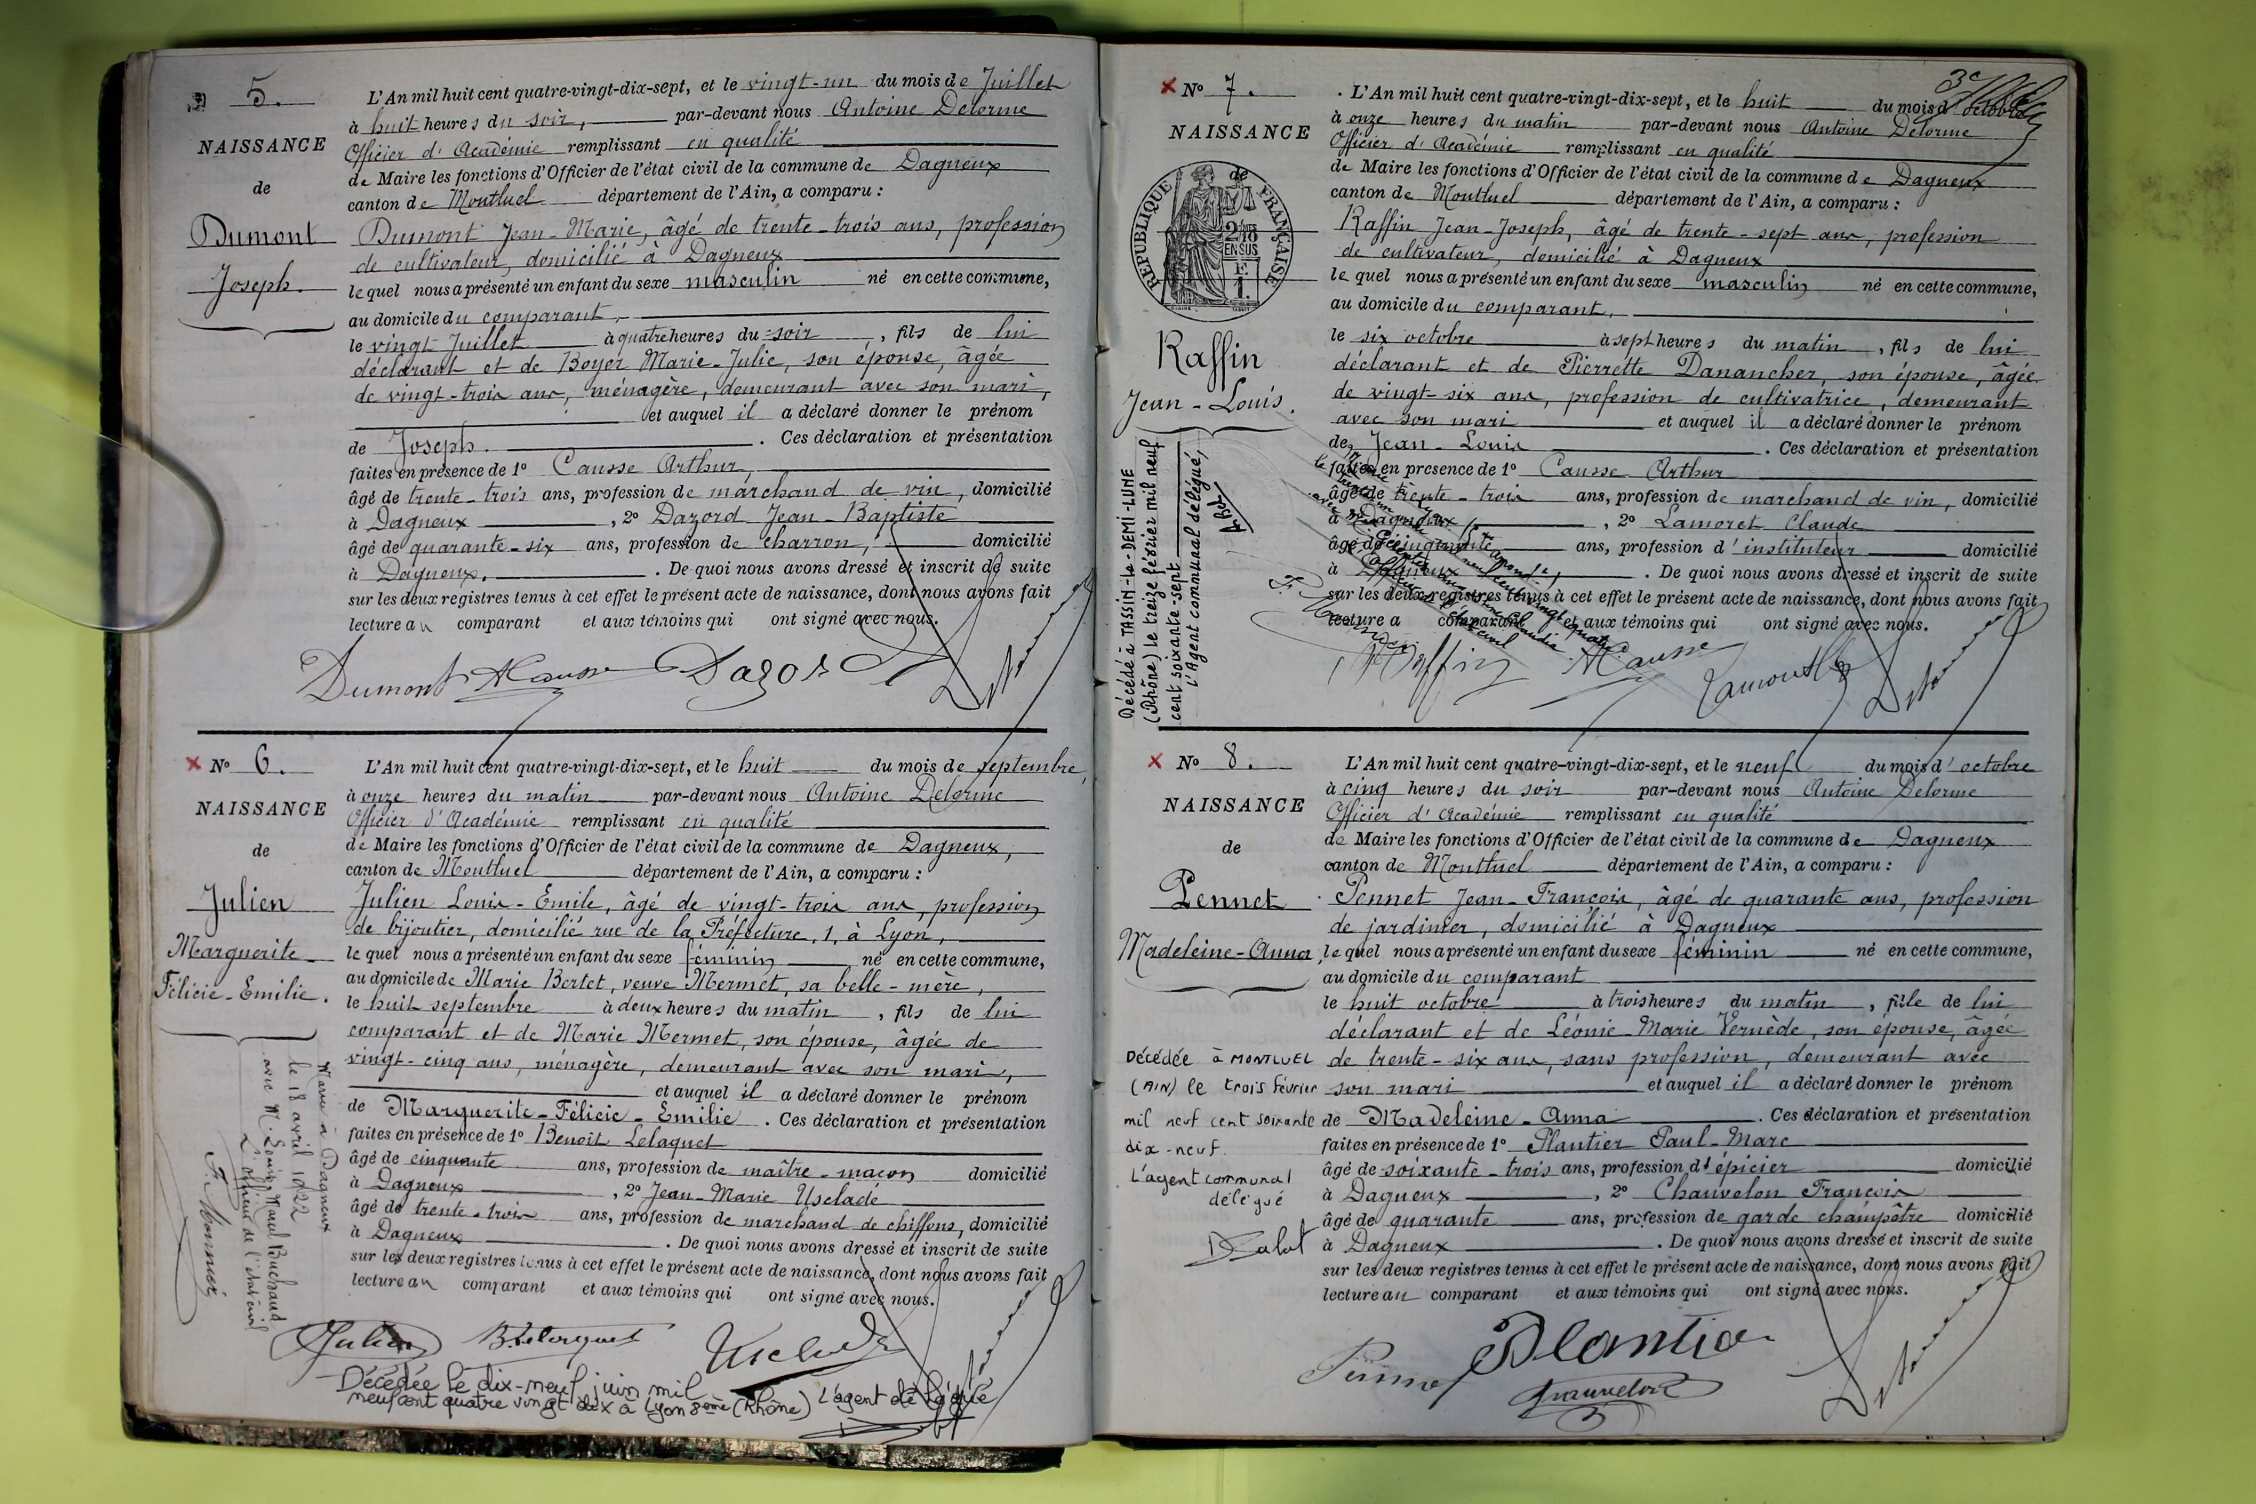 5.
NAISSANCE
de
Dumont
Joseph.
L'An mil huit cent quatre-vingt-dix-sept, et le vingt-un du mois de Juillet
à huit heures du soir, par-devant nous Antoine Delorme
Officier d'Académie remplissant en qualité
de Maire les fonctions d'Officier de l'état civil de la commune de Dagneux
canton de Montluel département de l'Ain, a comparu :
Dumont Jean-Marie, âgé de trente-trois ans, profession
de cultivateur, domicilié à Dagneux
le quel nous a présenté un enfant du sexe masculin né en cette commune,
au domicile du comparant,
le vingt Juillet à quatre heures du soir, fils de lui
déclarant et de Boyer Marie-Julie, son épouse, âgée
de vingt-trois ans, ménagère, demeurant avec son mari,
et auquel il a déclaré donner le prénom
de Joseph. Ces déclaration et présentation
faites en présence de 1o Causse Arthur,
âgé de trente-trois ans, profession de marchand de vin, domicilié
à Dagneux, 2o Dazord Jean-Baptiste
âgé de quarante-six ans, profession de charron, domicilié
à Dagneux. De quoi nous avons dressé et inscrit de suite
sur les deux registres tenus à cet effet le présent acte de naissance, dont nous avons fait
lecture au comparant et aux témoins qui ont signé avec nous.
Dumont ACausse Dazord Delorme
No 6.
NAISSANCE
de
Julien
Marguerite-
Félicie-Emilie.
Marié à Dagneux
le 18 avril 1922
avec M. Louis, Marcel Buchaud
L'officier de l'état civil
F. Monnier
L'An mil huit cent quatre-vingt-dix-sept, et le huit du mois de septembre,
à onze heures du matin par-devant nous Antoine Delorme
Officier d'Académie remplissant en qualité
de Maire les fonctions d'Officier de l'état civil de la commune de Dagneux,
canton de Montluel département de l'Ain, a comparu :
Julien Louis-Emile, âgé de vingt-trois ans, profession
de bijoutier, domicilié rue de la Préfecture, 1, à Lyon,
le quel nous a présenté un enfant du sexe féminin né en cette commune,
au domicile de Marie Bertet, veuve Mermet, sa belle-mère,
le huit septembre à deux heures du matin, fils de lui
comparant et de Marie Mermet, son épouse, âgée de
vingt-cinq ans, ménagère, demeurant avec son mari,
et auquel il a déclaré donner le prénom
de Marguerite-Félicie-Emilie. Ces déclaration et présentation
faites en présence de 1o Benoît Lelaquet
âgé de cinquante ans, profession de maître-maçon domicilié
à Dagneux, 2o Jean-Marie Uscladé
âgé de trente-trois ans, profession de marchand de chiffons, domicilié
à Dagneux. De quoi nous avons dressé et inscrit de suite
sur les deux registres tenus à cet effet le présent acte de naissance, dont nous avons fait
lecture au comparant et aux témoins qui ont signé avec nous.
Julien
Décédée le dix-neuf juin mil
neuf cent quatre vingt dix à Lyon 8ème (Rhône) L'agent délégué
No 7.
NAISSANCE
de
REPUBLIQUE FRANÇAISE
2/10
EN SUS
F.
1
Raffin
Jean-Louis.
Décédé à TASSIN-la-DEMI-LUNE
(Rhône) le treize février mil neuf
cent soixante-sept
l'Agent communal délégué,
L'An mil huit cent quatre-vingt-dix-sept, et le huit du mois d'octobre
à onze heures du matin par-devant nous Antoine Delorme
Officier d'Académie remplissant en qualité
de Maire les fonctions d'Officier de l'état civil de la commune de Dagneux
canton de Montluel département de l'Ain, a comparu :
Raffin Jean-Joseph, âgé de trente-sept ans, profession
de cultivateur, domicilié à Dagneux
le quel nous a présenté un enfant du sexe masculin né en cette commune,
au domicile du comparant,
le six octobre à sept heures du matin, fils de lui
déclarant et de Pierrette Danancher, son épouse, âgée
de vingt-six ans, profession de cultivatrice, demeurant
avec son mari et auquel il a déclaré donner le prénom
de Jean-Louis. Ces déclaration et présentation
faites en présence de 1o Causse Arthur
âgé de trente-trois ans, profession de marchand de vin, domicilié
à Dagneux, 2o Lamoret Claude
âgé de cinquante ans, profession d'instituteur domicilié
à Dagneux. De quoi nous avons dressé et inscrit de suite
sur les deux registres tenus à cet effet le présent acte de naissance, dont nous avons fait
lecture a comparant et aux témoins qui ont signé avec nous.
Raffin ACausse Delorme
No 8.
NAISSANCE
de
Pennet
Madeleine-Anna,
Décédée à MONTLUEL
(AIN) le trois février
mil neuf cent soixante
dix-neuf.
L'agent communal
délégué
L'An mil huit cent quatre-vingt-dix-sept, et le neuf du mois d'octobre
à cinq heures du soir par-devant nous Antoine Delorme
Officier d'Académie remplissant en qualité
de Maire les fonctions d'Officier de l'état civil de la commune de Dagneux
canton de Montluel département de l'Ain, a comparu :
Pennet Jean-François, âgé de quarante ans, profession
de jardinier, domicilié à Dagneux
le quel nous a présenté un enfant du sexe féminin né en cette commune,
au domicile du comparant
le huit octobre à trois heures du matin, fille de lui
déclarant et de Léonie-Marie Vernède, son épouse, âgée
de trente-six ans, sans profession, demeurant avec
son mari et auquel il a déclaré donner le prénom
de Madeleine-Anna. Ces déclaration et présentation
faites en présence de 1o Plantier Paul-Marc
âgé de soixante-trois ans, profession d'épicier domicilié
à Dagneux, 2o Chauvelon François
âgé de quarante ans, profession de garde champêtre domicilié
à Dagneux. De quoi nous avons dressé et inscrit de suite
sur les deux registres tenus à cet effet le présent acte de naissance, dont nous avons fait
lecture au comparant et aux témoins qui ont signé avec nous.
Pennet Plantier Delorme
Chauvelon